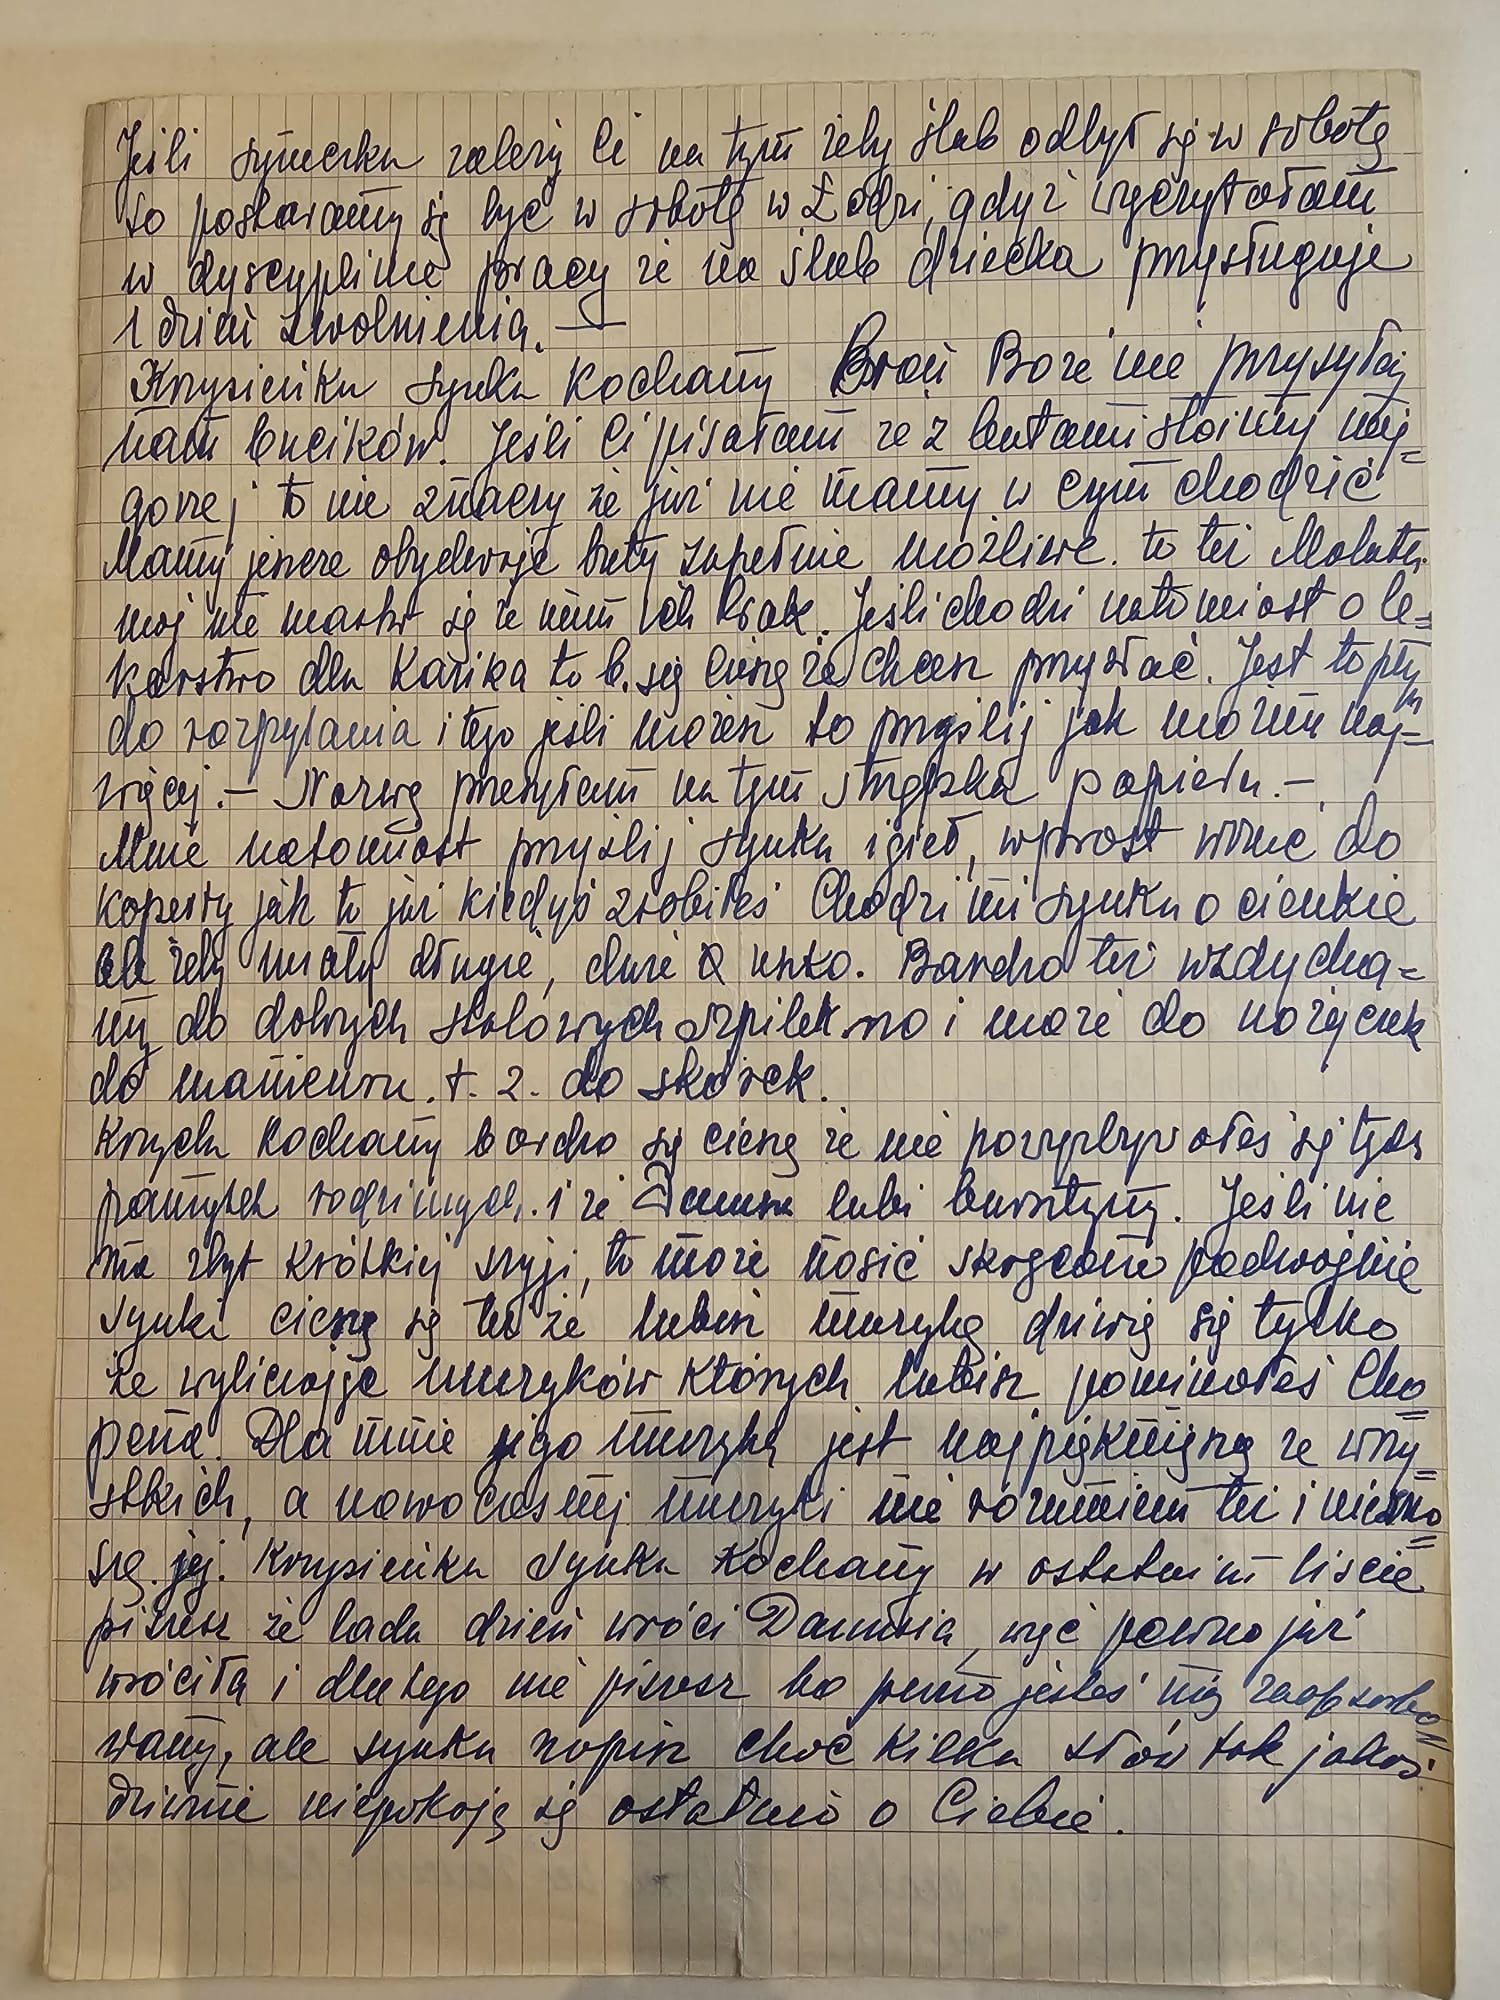 Jeśli syneczku zależy Ci na tym żeby ślub odbył się w sobotę
to postaramy się być w sobotę w Łodzi, gdyż wyczytałam
w dyscyplinie pracy że na ślub dziecka przysługuje
1 dzień zwolnienia. —
Krzysieńku synku kochany Broń Boże nie przysyłaj
nam bucików. Jeśli Ci pisałam że z butami stoimy naj=
gorzej to nie znaczy że już nie mamy w czym chodzić
Mamy jeszcze obydwoje buty zupełnie możliwe. to też
moj nie martw się że nam ich brak. Jeśli chodzi natomiast o le=
karstwo dla Kazika to b. się cieszę że chcesz przysłać. Jest to płyn
do rozpylania i tego jeśli możesz to przyślij jak można naj=
więcej. — Nazwę przesyłam na tym strzępku papieru. —
Mnie natomiast przyślij synku igieł, wprost włóż do
koperty jak to już kiedyś zrobiłeś Chodzi mi synku o cienkie
ale żeby miały długie, duże uszko. Bardzo też wzdycha=
my do dobrych stalowych szpilek no i może do nożyczek
do manicuru. t. z. do skórek.
Krzychu kochany bardzo się cieszę że nie powyzbywałeś się tych
pamiątek rodzinnych. i że Danusia lubi bursztyny. Jeśli nie
ma zbyt krótkiej szyji, to może nosić skręcone podwójnie
Synku cieszę się też że lubisz muzykę dziwię się tylko
że wyliczając muzyków których lubisz pominąłeś Cho=
pena. Dla mnie jego muzyka jest najpiękniejszą ze wszy=
stkich, a nowoczesnej muzyki nie rozumiem też i
się jej. Krzysieńku Synku Kochany w ostatnim liście
piszesz że lada dzień wróci Danusia, więc pewno już
wróciła i dlatego nie piszesz bo pewno jesteś nią zaabsorbo=
wany, ale synku napisz choć kilka słów tak jakoś
dziwnie niepokoję się ostatnio o Ciebie.